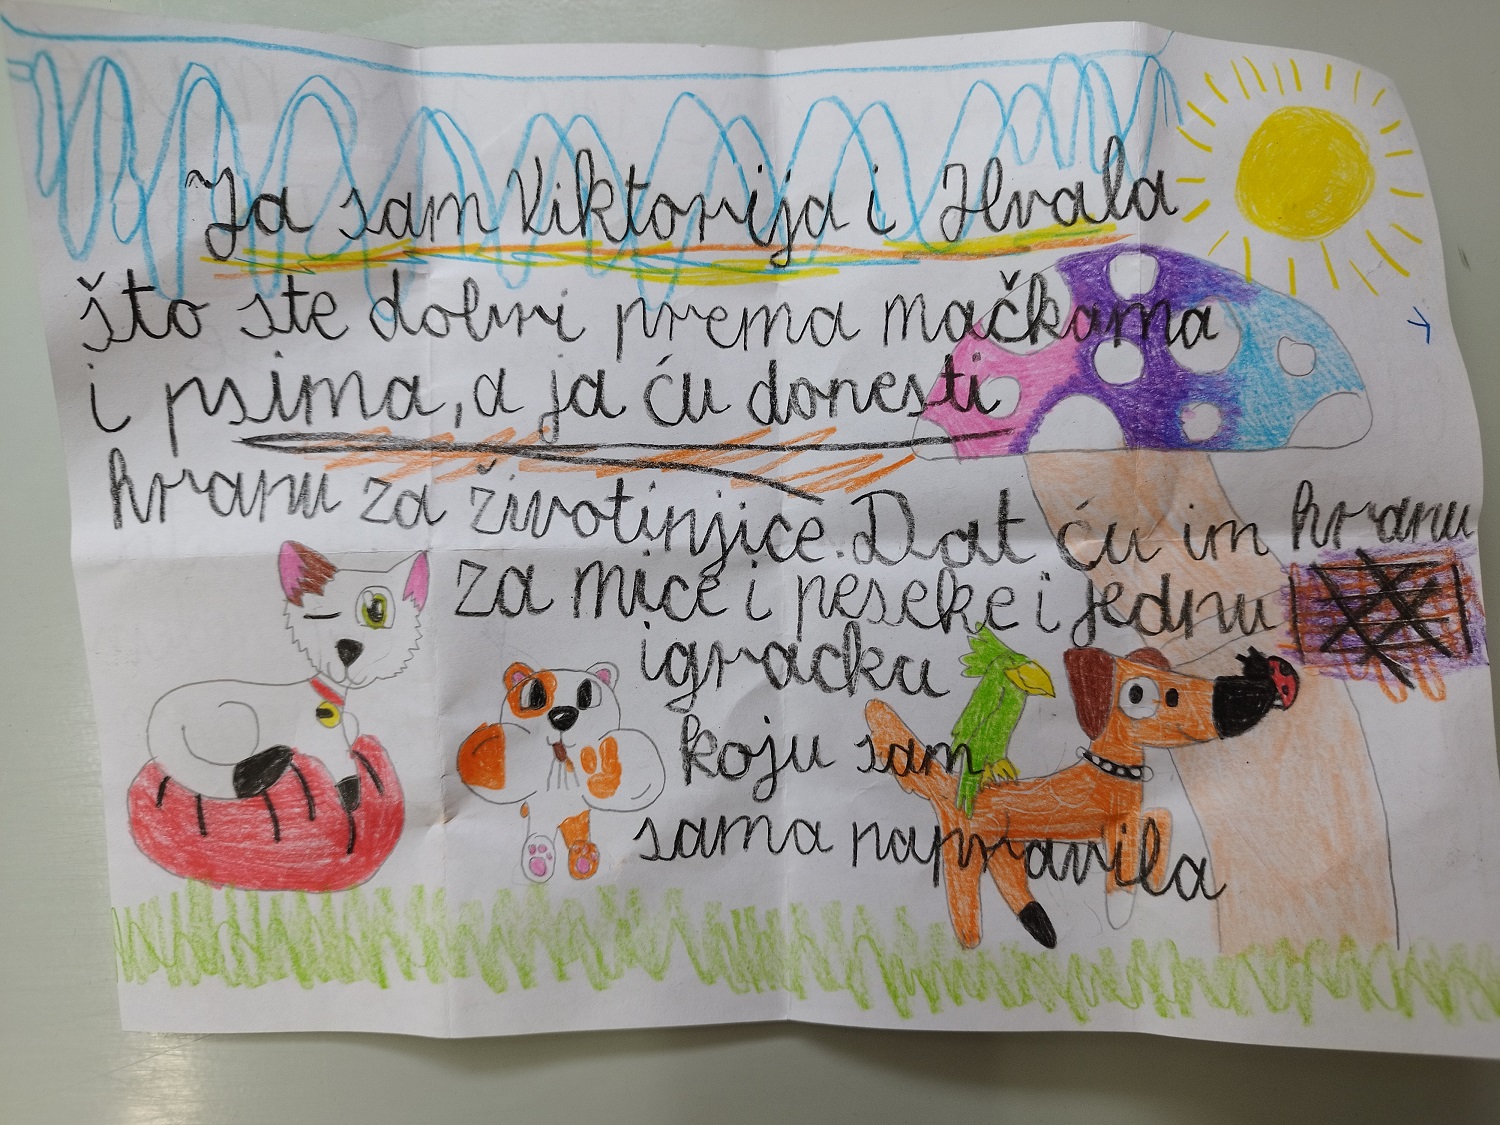 Ja sam Viktorija i Hvala
što ste dobri prema mačkama
i psima, a ja ću donesti
hranu za životinjice. Dat ću im hranu
za mice i peseke i jednu
igracku
koju sam
sama napravila